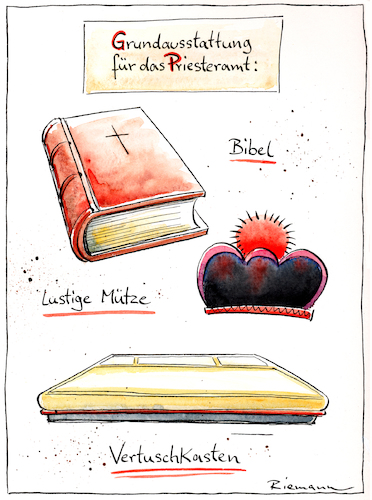 Grundausstattung
für das Priesteramt:
Bibel
Lustige Mütze
Vertuschkasten
Riemann